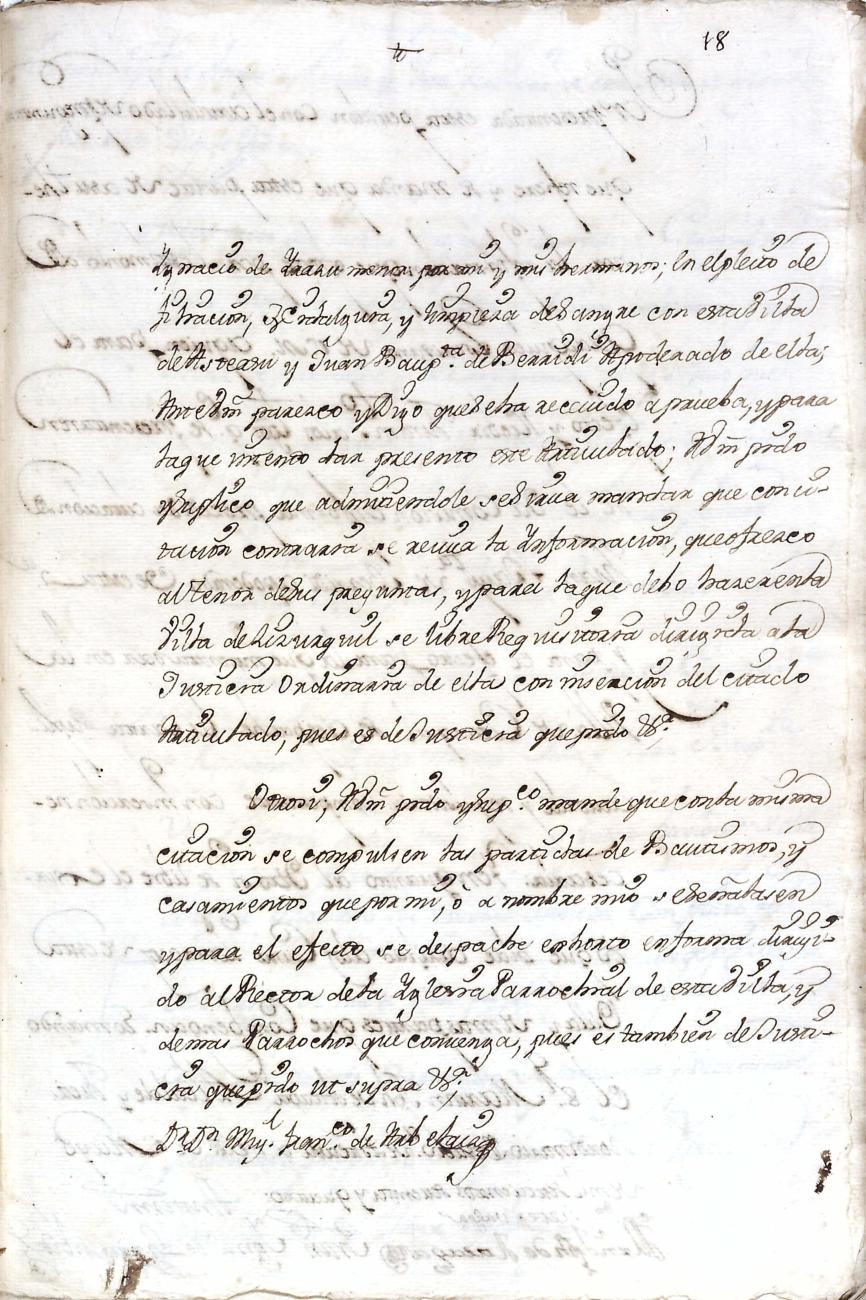 18
Ygnacio de Yrazu menor por mi y mis hermanos; En el pleito de
filiacion, Hidalguia, y limpieza de Sangre con esta Villa
de Asteasu y Juan Baupta. de Berridi Apoderado de ella;
Ante Vm̃ parezco y Digo que se ha recivido a prueba, y para
la que intento dar presento este Articulado; A Vm̃ pido
y Suplico que admitiendole se Sirva mandar que con ci-
tacion contraria se reciva la Ynformacion, que ofrezco
al tenor de sus preguntas, y para la que debo hazer en la
Villa de Lizurquil se libre Requisitoria dirigida a la
Justicia Ordinaria de ella con insercion del citado
Articulado; pues es de Justicia que pido &a.
Otrosi; A Vm̃ pido y Supco. mande que con la misma
citacion se compulsen las partidas de Bautismos, y
casamientos que por mi, ò a nombre mio se señalasen
y para el efecto se despache exhorto en forma dirigi-
do al Rector de la Yglesia Parrochial de esta Villa, y
demas Parrochos que convenga, pues es tambien de Justi-
cia que pido ut supra &a.
Dr. Dn. Migl. Franco. de Arbelaiz